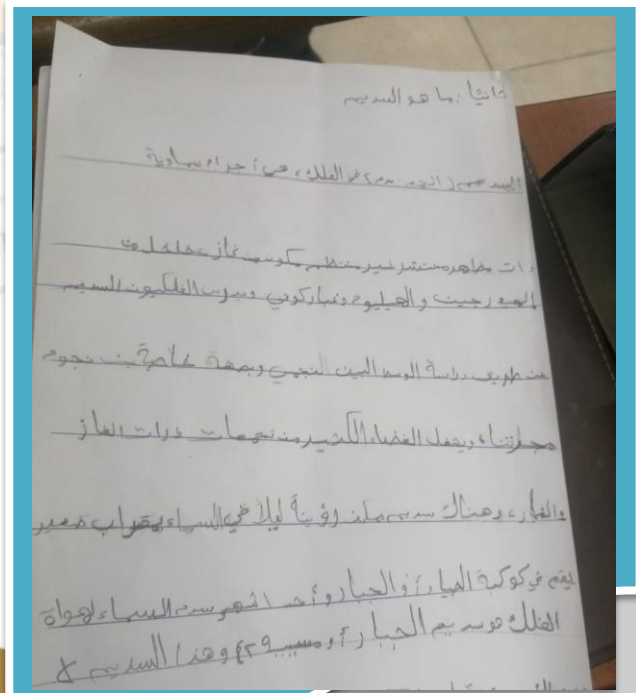 ثانيا: ما هو السديم
السديم في الفلك، هي أجرام سماوية
ذات مظاهر منتشر غير منتظم مكونه من غاز متخلخل من
الهيدروجين والهيليوم وغبار كوني ويدرس الفلكيون السديم
عن طريق دراسة الوسط البين النجمي وبصفة خاصة بين نجوم
مجرتنا، ويشغل الفضاء الكثير من تجمعات ذرات الغاز
والغبار، وهناك سديم يمكن رؤينة ليلا في السماء بمقراب صغير
يقع في كوكبة الجبار وأحد اشهر سدم السماء لهواة
الفلك هو سديم الجبار أو مسييه ٤٢ وهذا السديم لا